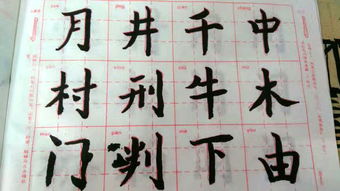 月井千中
村刑牛木
门判下由